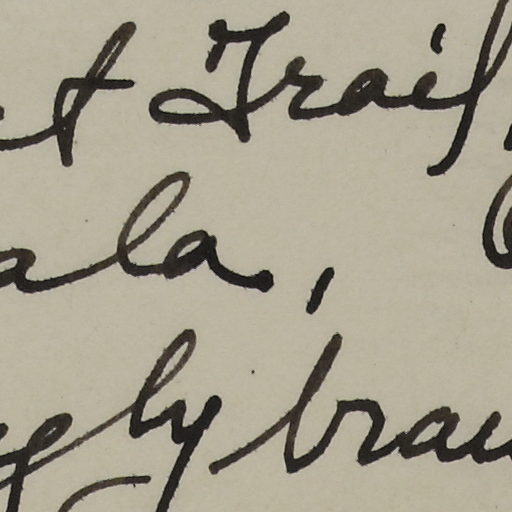 t Trail,
ala,
gly brau